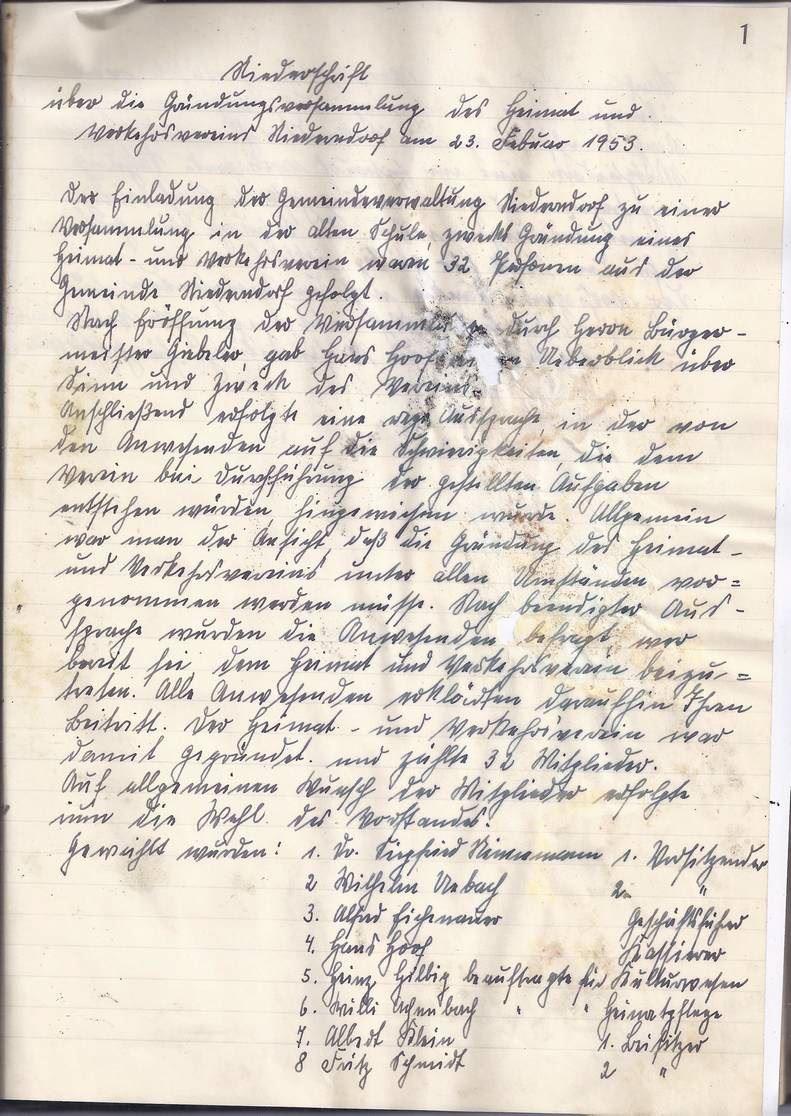 1
Niederschrift
über die Gründungsversammlung des Heimat und
Verkehrsvereins Niederndorf am 23. Februar 1953.
Der Einladung der Gemeindeverwaltung Niederndorf zu einer
Versammlung in der alten Schule, zwecks Gründung eines
Heimat- und Verkehrsverein waren 32 Personen aus der
Gemeinde Niederndorf gefolgt.
Nach Eröffnung der durch Herrn Bürger-
meister Giebeler, gab Hans Hoof Ueberblick über
Sinn und Zweck des Vereins.
Anschließend erfolgte eine rege Aussprache, in der von
den Anwesenden auf die Schwierigkeiten, die dem
Verein bei Durchführung der gestellten Aufgaben
entstehen würden, hingewiesen wurde. Allgemein
war man der Ansicht, daß die Gründung des Heimat-
und Verkehrsvereins unter allen Umständen vor=
genommen werden müsse. Nach beendigter Aus-
sprache wurden die Anwesenden befragt, wer
bereit sei dem Heimat und Verkehrsverein beizu=
treten. Alle Anwesenden erklärten daraufhin Ihren
Beitritt. Der Heimat- und Verkehrsverein war
damit gegründet und zählte 32 Mitglieder.
Auf allgemeinen Wunsch der Mitglieder erfolgte
nun die Wahl des Vorstandes.
Gewählt wurden: 1. Dr. Siegfried 1. Vorsitzender
2 Wilhelm Uebach 2. "
3. Alfred Eichenauer Geschäftsführer
4. Hans Hoof Kassierer
5. Heinz Hillig beauftragte für Kulturwesen
6. Willi Achenbach " " Heimatpflege
7. Albert Klein 1. Beisitzer
8 Fritz Schmidt 2 "